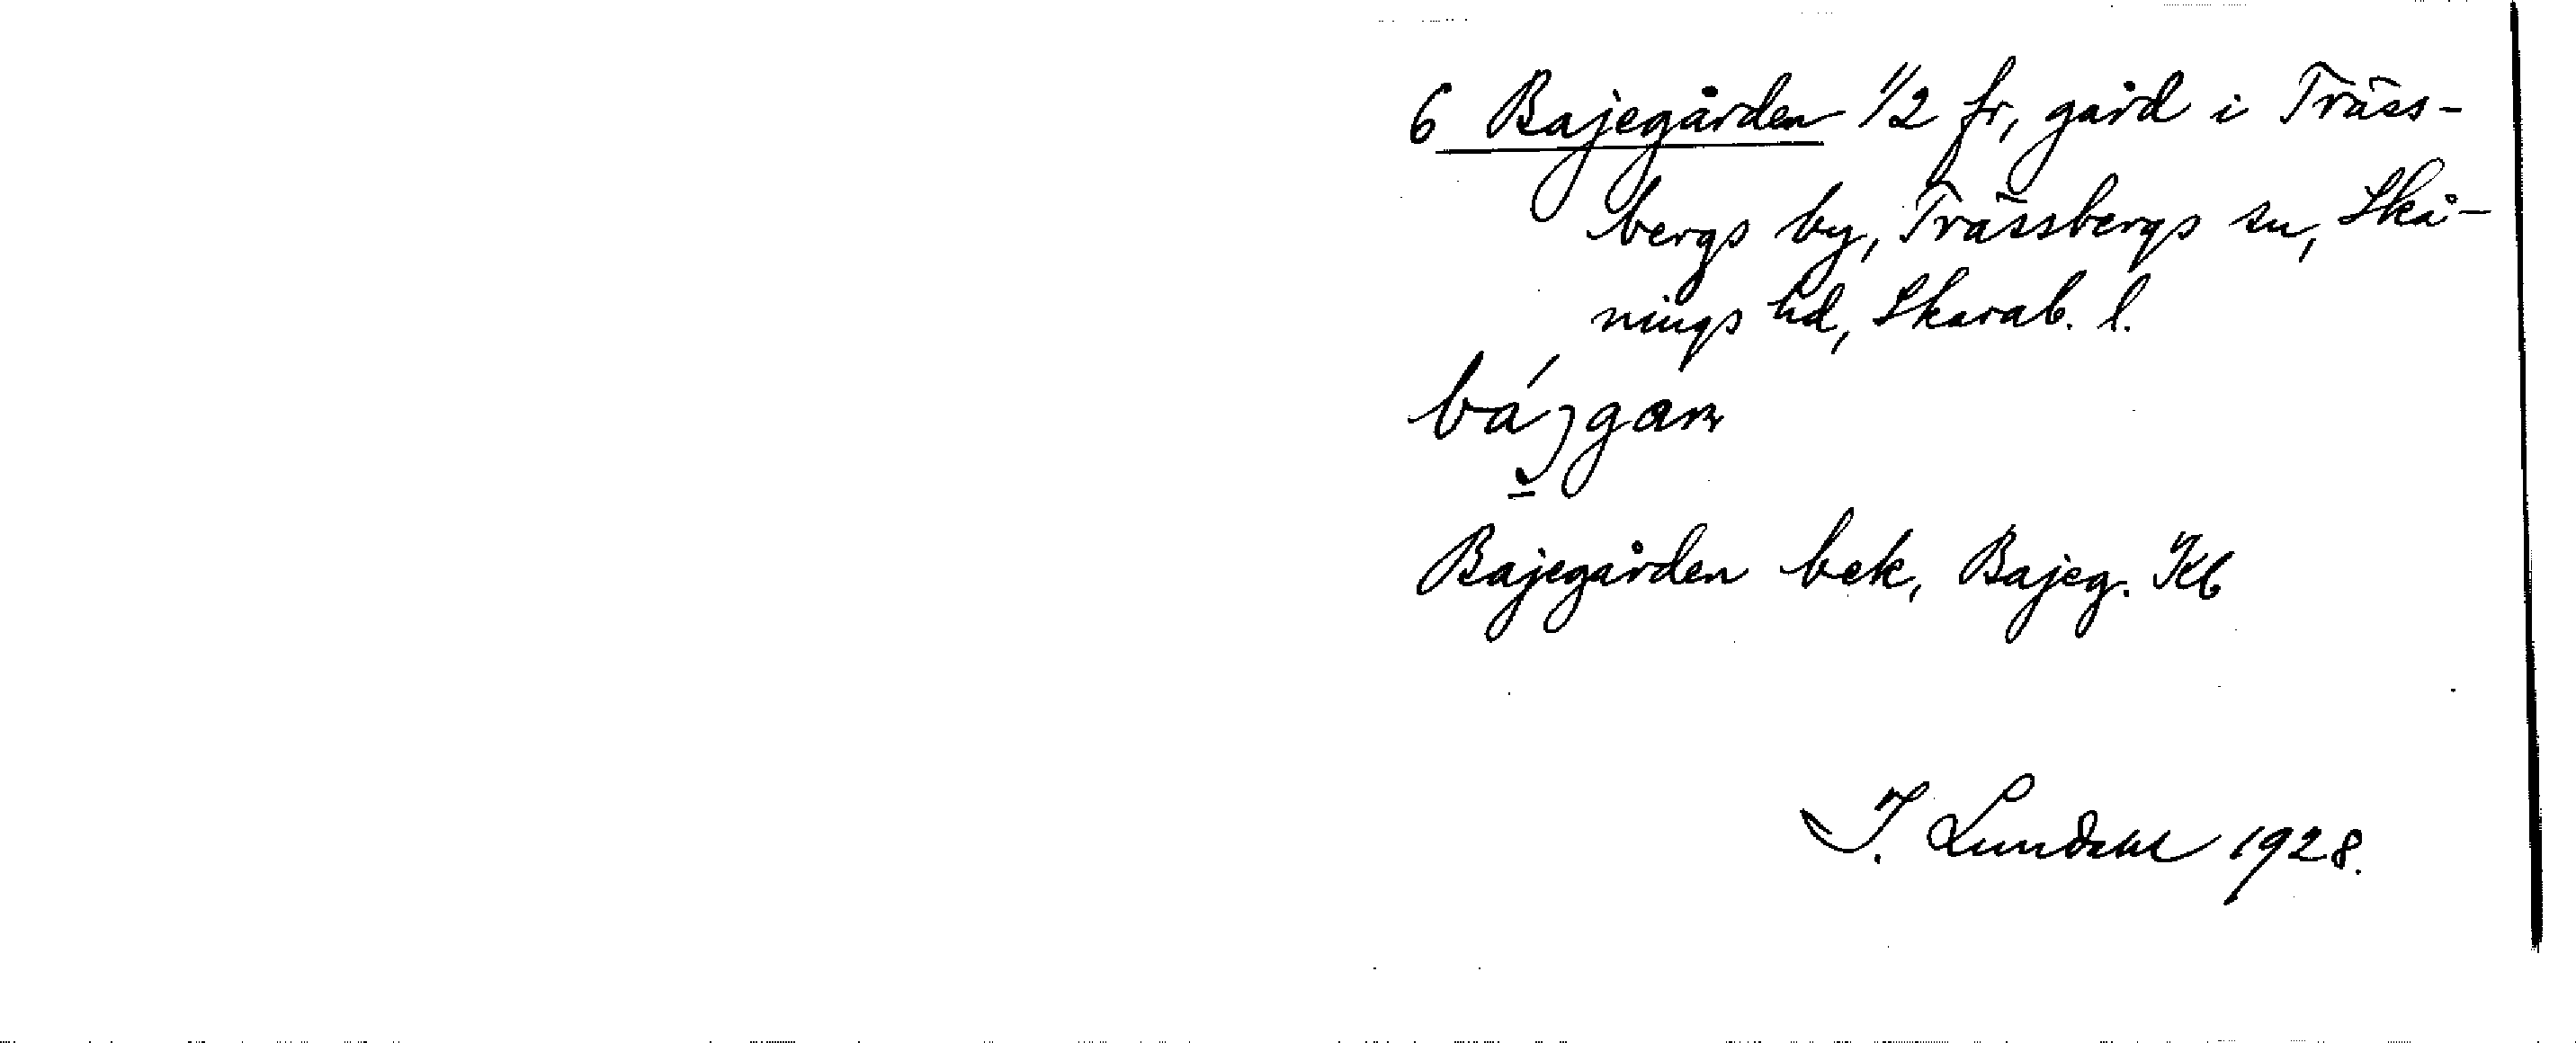 6 Bajegården 1/2 fr, gård i Träss-
bergs by, Trässbergs sn, Skå-
nings hd, Skarab. l.
bájgaɳ
Bajegården bek, Bajeg. Kb
I. Lundahl 1928.